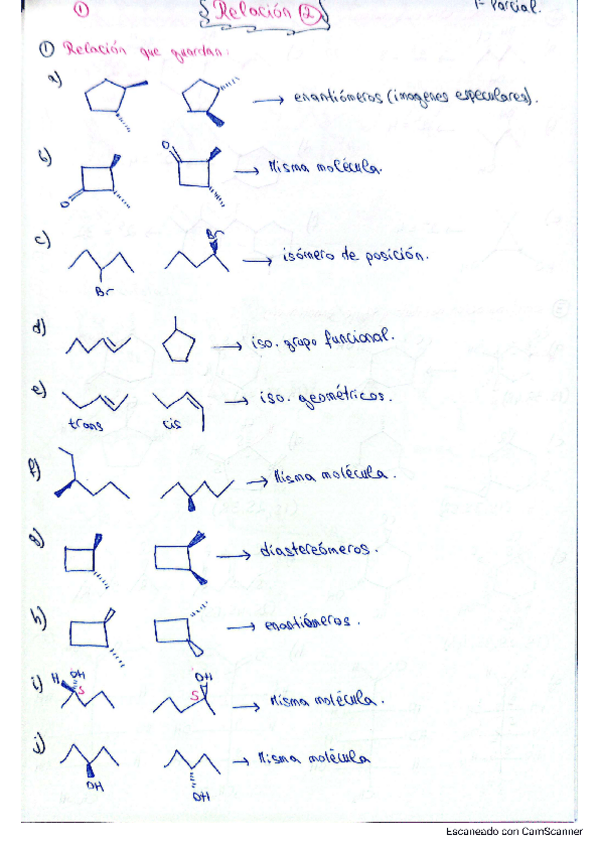 ① § Relación ② 1º Parcial.
① Relación que guardan:
a) → enantiómeros (imagenes especulares).
b) O O → Misma molécula.
c) Br Br → isómero de posición.
d) → iso. grupo funcional.
e) trans cis → iso. geométricos.
f) → Misma molécula.
g) → diastereómeros.
h) → enantiómeros.
i) H OH S OH S → Misma molécula.
j) OH OH → Misma molécula
Escaneado con CamScanner